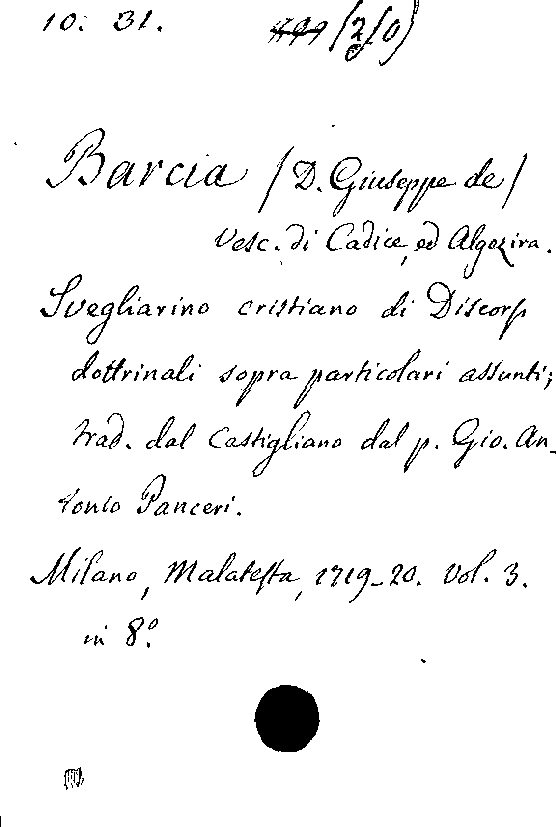 10. 31.
Barcia (D. Giuseppe de)
Vesc. di Cadice, ed Algezira.
Svegliarino cristiano di Discorsi
dottrinali sopra particolari assunti;
trad. dal Castigliano dal p. Gio. An-
tonio Panceri.
Milano, Malatesta, 1719-20. Vol. 3.
in 8.º